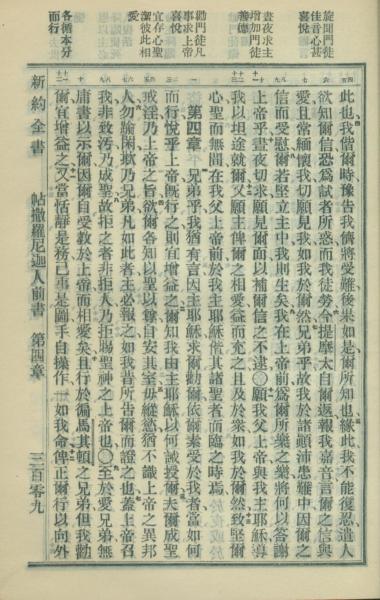 旋聞門徒
佳音心甚
喜悅
晝夜求主
增加門徒
善德
勸門徒凡
事求上帝
喜悅
宜存心聖
潔彼此相
愛
各循本分
而行
此也我偕爾時豫告我儕將受難後果如是爾所知也緣此我不能復忍遣人
欲知爾信恐爲試者所惑而我徒勞今提摩太自爾返報我嘉音言爾之信與
愛且常緬懷我切願見我如我於爾然兄弟乎故我於諸顚沛患難中因爾之
信而受慰爾若堅立主中我則生矣我在上帝前爲爾所樂之樂將何以答謝
上帝乎晝夜切求願見爾面以補爾信之不逮〇願我父上帝與我主耶穌導
我以坦途就爾又願主俾爾之相愛益而充之且及於衆如我於爾然致堅爾
心聖而無間在我父上帝前於我主耶穌偕其諸聖者而臨之時焉
第四章 兄弟乎我猶有言因主耶穌求爾勸爾依爾素受於我者當如何
而行悅乎上帝旣行之則宜增益之爾知我由主耶穌以何誡授爾夫爾成聖
戒淫乃上帝之旨欲爾各知以聖以尊自安其室毋縱慾猶不識上帝之異邦
人勿踰閑欺乃兄弟凡如此者主必報之如我昔所告爾而證之也蓋上帝召
我非致汚乃成聖故拒之者非拒人乃拒賜聖神之上帝也〇至於愛兄弟無
庸書以示爾因爾自受敎於上帝而相愛矣且行於徧馬其頓之兄弟但我勸
爾宜增益之又當恬靜是務己事是圖手自操作一如我命俾正爾行以向外
新約全書 帖撒羅尼迦人前書 第四章 三百零九